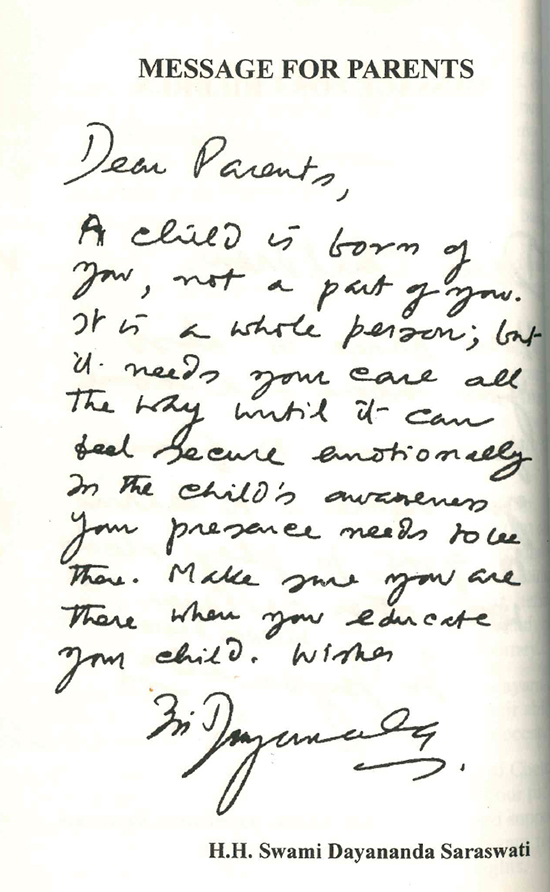 MESSAGE FOR PARENTS
Dear Parents,
A child is born of
you, not a part of you.
It is a whole person; but
it needs your care all
the way until it can
feel secure emotionally
In the child's awareness
your presence needs to be
there. Make sure you are
there when you educate
your child. Wishes
H.H. Swami Dayananda Saraswati